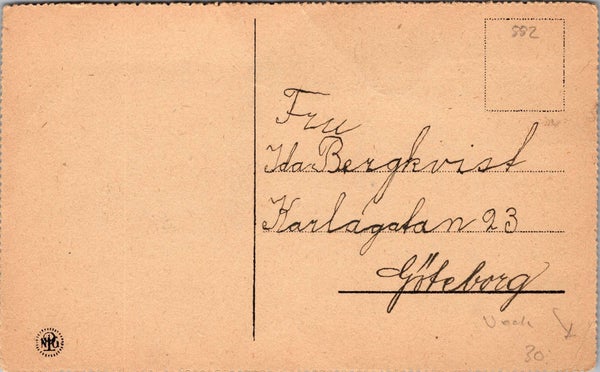 552
Fru
Ida Bergkvist
Karlagatan 23
Göteborg
NPG
30: